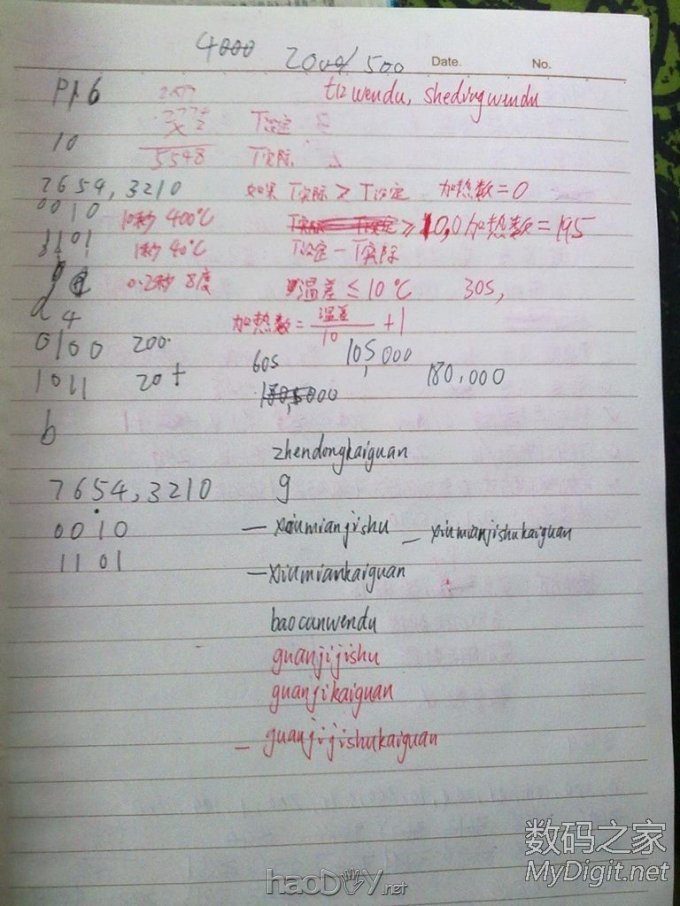 4000 2000/500 Date. No.
P1.6 tizwendu, shedingwendu
× 2 T设定
10 5548 T实际
7654,3210 如果 T实际 > T设定 加热数=0
0010 10秒 400℃ ≥ 10,0 加热数=195
1101 1秒 40℃ T设定-T实际
0.2秒 8度 温差≤10℃ 30S,
d 4 加热数=温差/10+1
0100 200 60s 105,000
1011 20+ 180,000
b
zhendongkaiguan
7654,3210 9
0010 -xiumianjishu -xiumianjishukaiguan
1101 -xiumiankaiguan
baocunwendu
guanjijishu
guanjikaiguan
-guanjijishukaiguan
数码之家
MyDigit.net
haoDIY.net